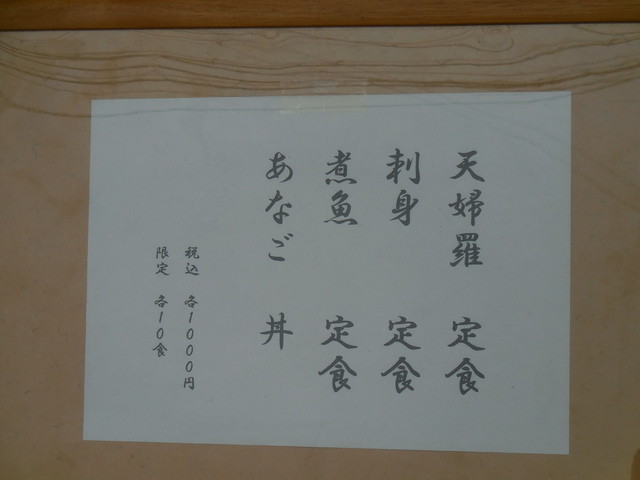 天婦羅 定食
刺身 定食
煮魚 定食
あなご 丼
税込 各1000円
限定 各10食